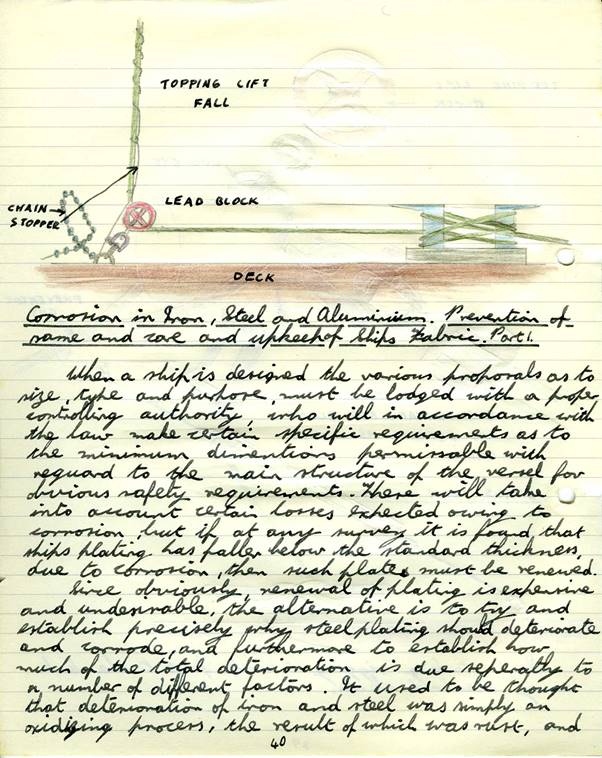 TOPPING LIFT
FALL
LEAD BLOCK
CHAIN
STOPPER
DECK
Corrosion in Iron, Steel and Aluminium. Prevention of
same and care and upkeep of Ships Fabric. Part 1.
When a ship is designed the various proposals as to
size, type and purpose, must be lodged with a proper
controlling authority, who will in accordance with
the law make certain specific requirements as to
the minimum dimentions permissable with
reguard to the main structure of the vessel for
obvious safety requirements. These will take
into account certain losses expected owing to
corrosion, but if at any survey it is found that
ships plating has fallen below the standard thickness,
due to corrosion, then such plates must be renewed.
Since obviously, renewal of plating is expensive
and undesirable, the alternative is to try and
establish precisely why steel plating should deteriorate
and corrode, and furthermore to establish how
much of the total deterioration is due seperatly to
a number of different factors. It used to be thought
that deterioration of iron and steel was simply an
oxidizing process, the result of which was rust, and
40